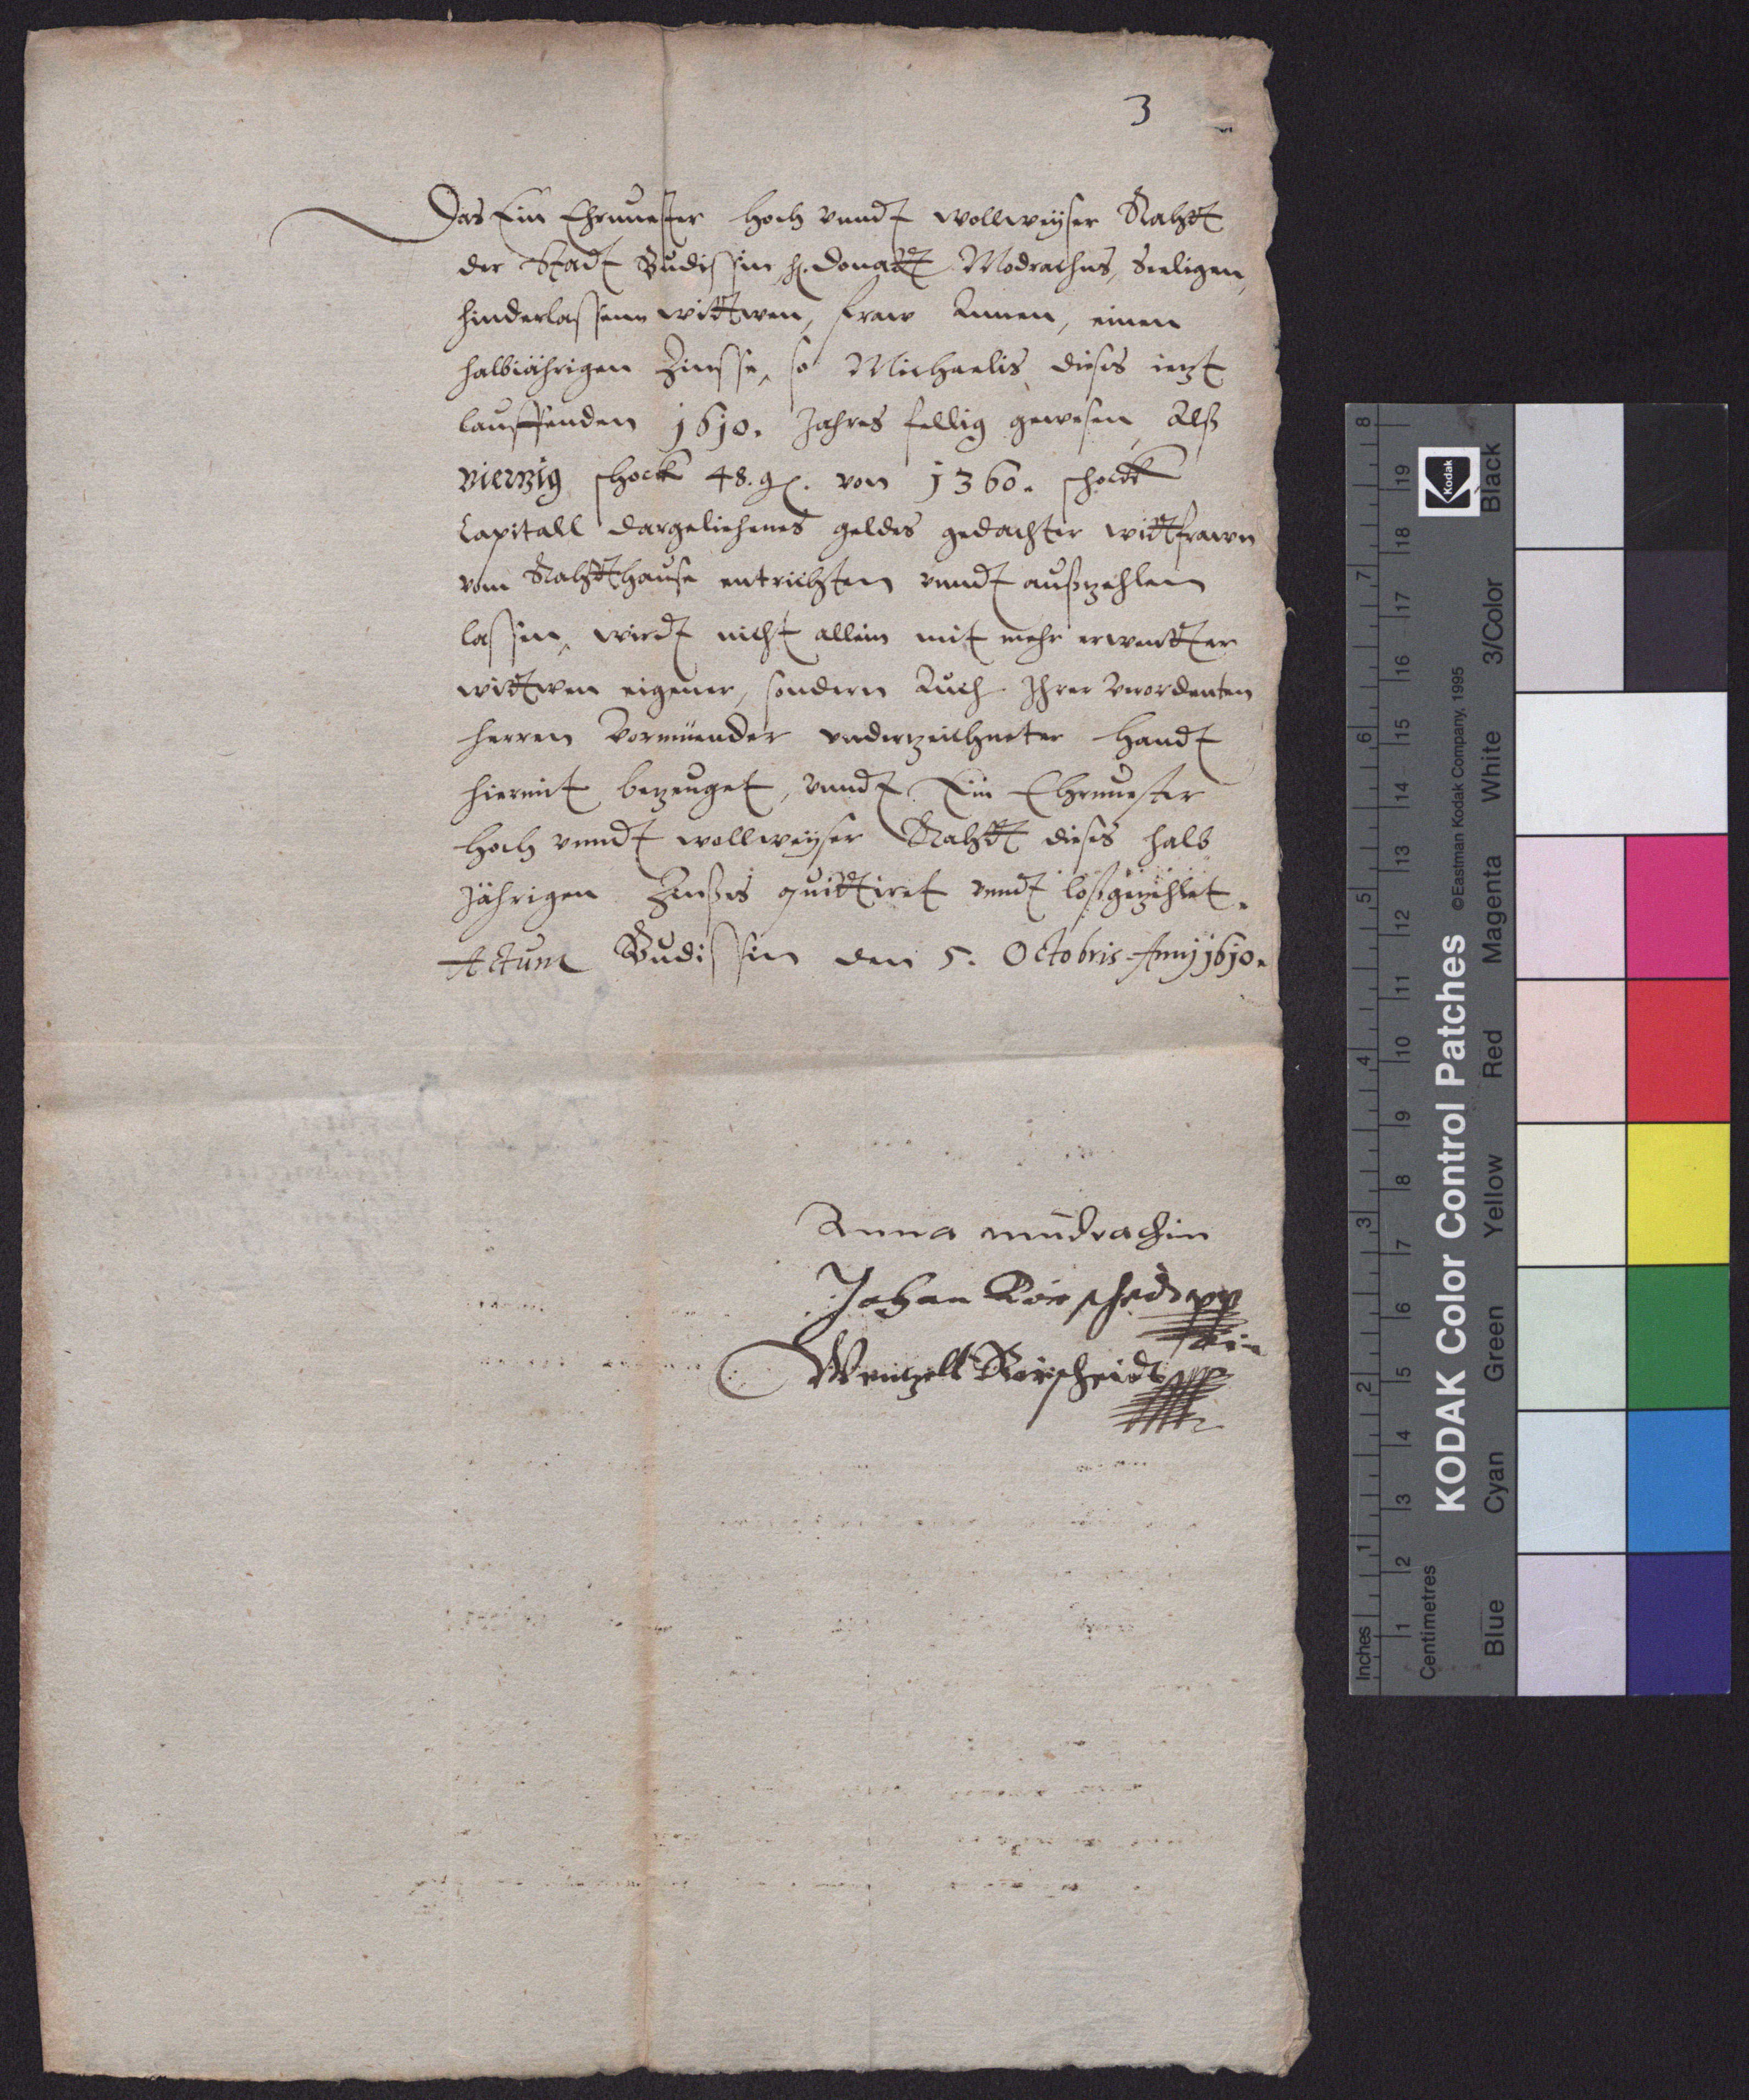 3
Das Ein Ehrnuester Hoch vnndt wollweyser Rahtt
der Stadt Budissin H. Donatt Modrachns, Seeligen,
hinderlassene wittwen, fraw Annen, einen
halbiährigen Zinsse, so Michaelis dieses ietzt
lauffenden 1610. Jahres fellig gewesen, Alß
vierzig schock 48. gr. von 1360. schock
Capitall dargeliehenes geldes gedachter wittfrawn
vom Rahtthause entrichten vnndt außzehlen
lassen, wirdt nicht allein mit mehr erwentter
wittwen eigener, sondern Auch Ihrer verordenten
herren Vormünder vnderzeichneter Handt
hiermit bezeuget, vnndt Ein Ehrnuester
Hoch vnndt wollweyser Rahtt dieses halb
Jährigen Zinßes quittiret vnndt loßgezehlet.
Actum Budissin den 5. Octobris Anni 1610.
Anna mudrachin
Johan
Wentzell
KODAK Color Control Patches
©Eastman Kodak Company, 1995
Inches 1 2 3 4 5 6 7 8
Centimetres 1 2 3 4 5 6 7 8 9 10 11 12 13 14 15 16 17 18 19
Blue Cyan Green Yellow Red Magenta White 3/Color Black
Kodak